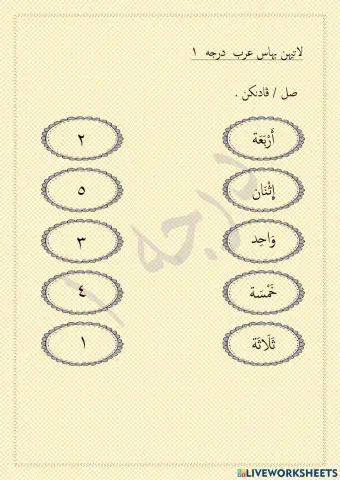 لاتيهن بهاس عرب درجه ١
صل / ڤادنكن .
أَرْبَعَة ٢
إِثْنَان ٥
وَاحِد ٣
خَمْسَة ٤
ثَلَاثَة ١
درجه ١
LIVEWORKSHEETS